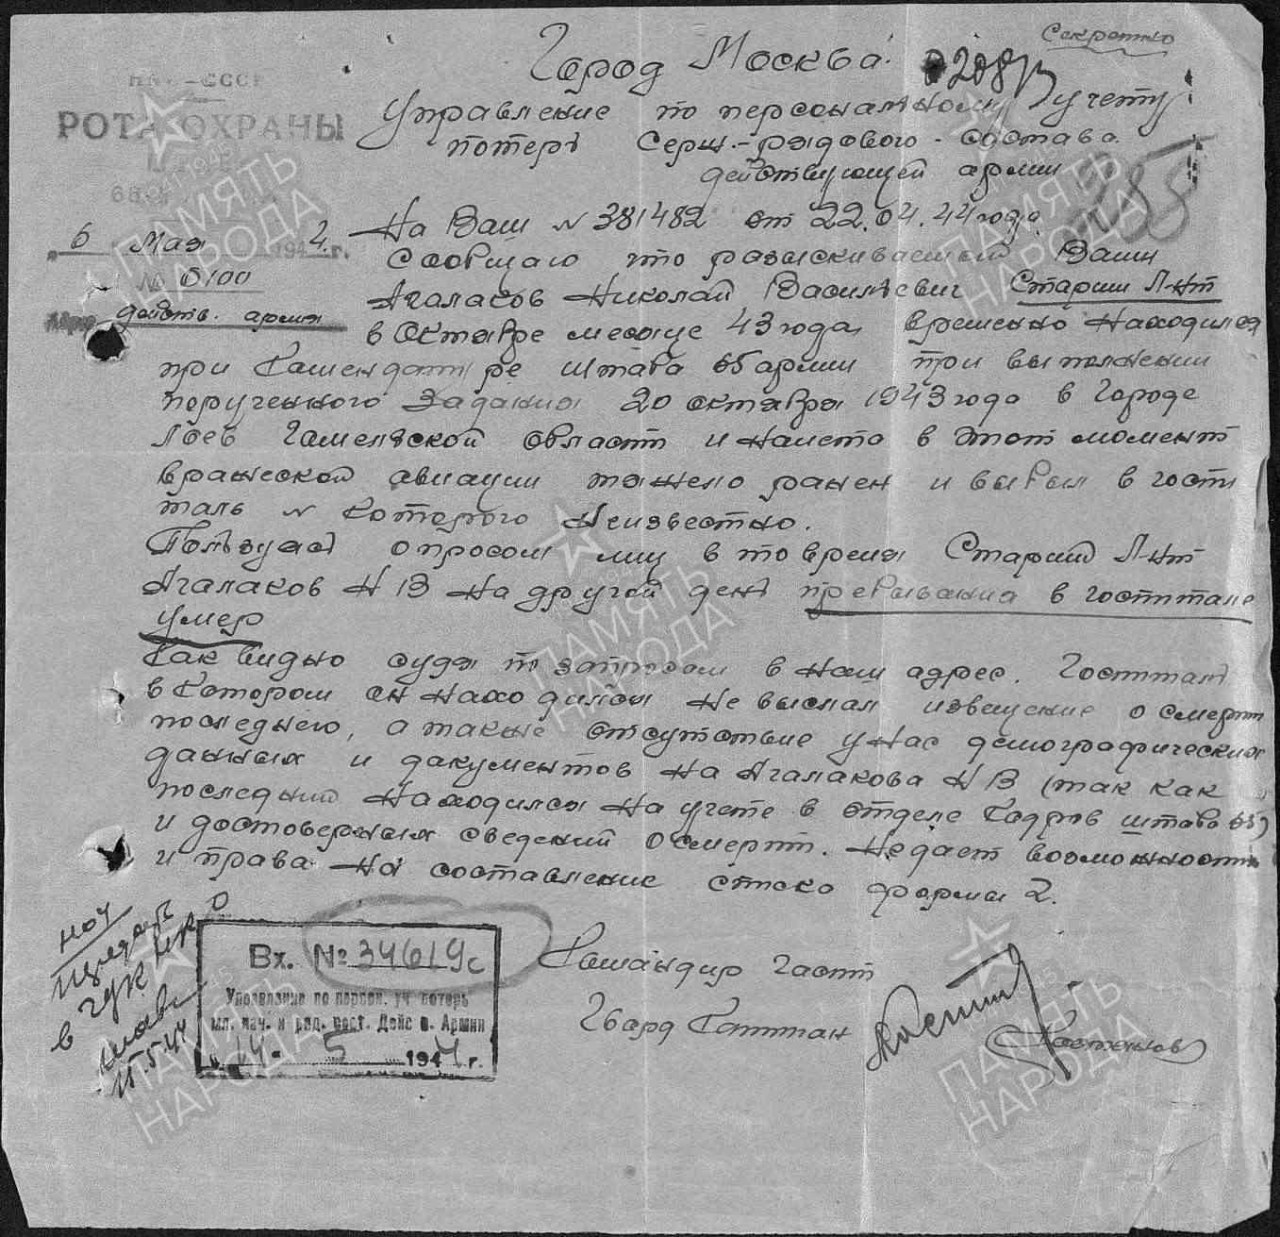 Секретно
Город Москва.
Управление по персональному учету
потерь Серж.-рядового - состава
действующей армии
НКО-СССР
РОТА ОХРАНЫ
288
6 Мая 194 г.
№ 0100
действ. армия
На Ваш № 381482 от 22.04.44 года
Сообщаю что разыскиваемый Вами
Агалаков Николай Васильевич Старши Л-нт
в Октябре месяце 43 года временно находился
при Каменданту ре штаба 65 армии при выполнении
порученного Задания 20 октября 1943 года в Городе
Лоев Гамельской област и налето в этот момент
вражеской авиации тяжело ранен и выбыл в госпи
таль № которого Неизвестно.
Ползуяс опросом лиц в то время Старший Л-нт
Агалаков Н В На другой ден пребывания в госпитале
умер
Как видно судя по запросам в наш адрес. Госпитал
в котором он находился не выслал извещение о смерти
последнего, а также отсутствие у нас демографических
данных и дакументов на Агалакова Н В (так как
последний Находился на учете в отделе Кадров штаба 65)
и достоверных сведений о смерти. Не дает возможности
и права на составление списка форма 2.
Командир Част
Гвард Капитан
Костенков
Вх. № 34619с
Управление по персон. уч. потерь
мл. нач. и ряд. сост. Дейс в. Армии
14 - 5 1944 г.
в ГУК НКО
15.5.44
ПАМЯТЬ
НАРОДА
ПАМЯТЬ
НАРОДА
ПАМЯТЬ
НАРОДА
ПАМЯТЬ
НАРОДА
ПАМЯТЬ
НАРОДА